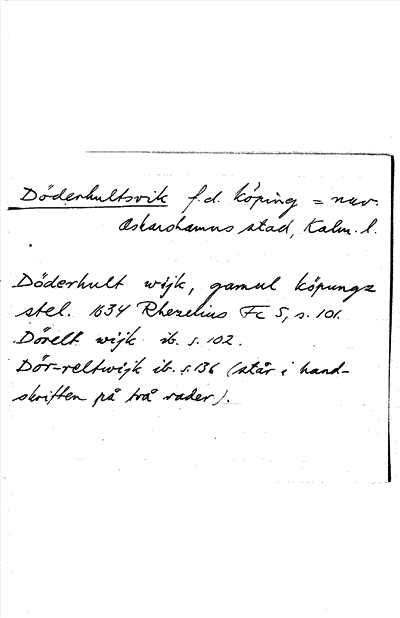 Döderhultsvik f.d. köping = nuv.
Oskarshamns stad, Kalm. l.
Döderhult wijk, gamul köpungz
stel. 1634 Rhezelius Fc 5, s. 101.
Dörelt wijk ib. s. 102.
Dör-reltwijk ib. s. 136 (står i hand-
skriften på två rader).